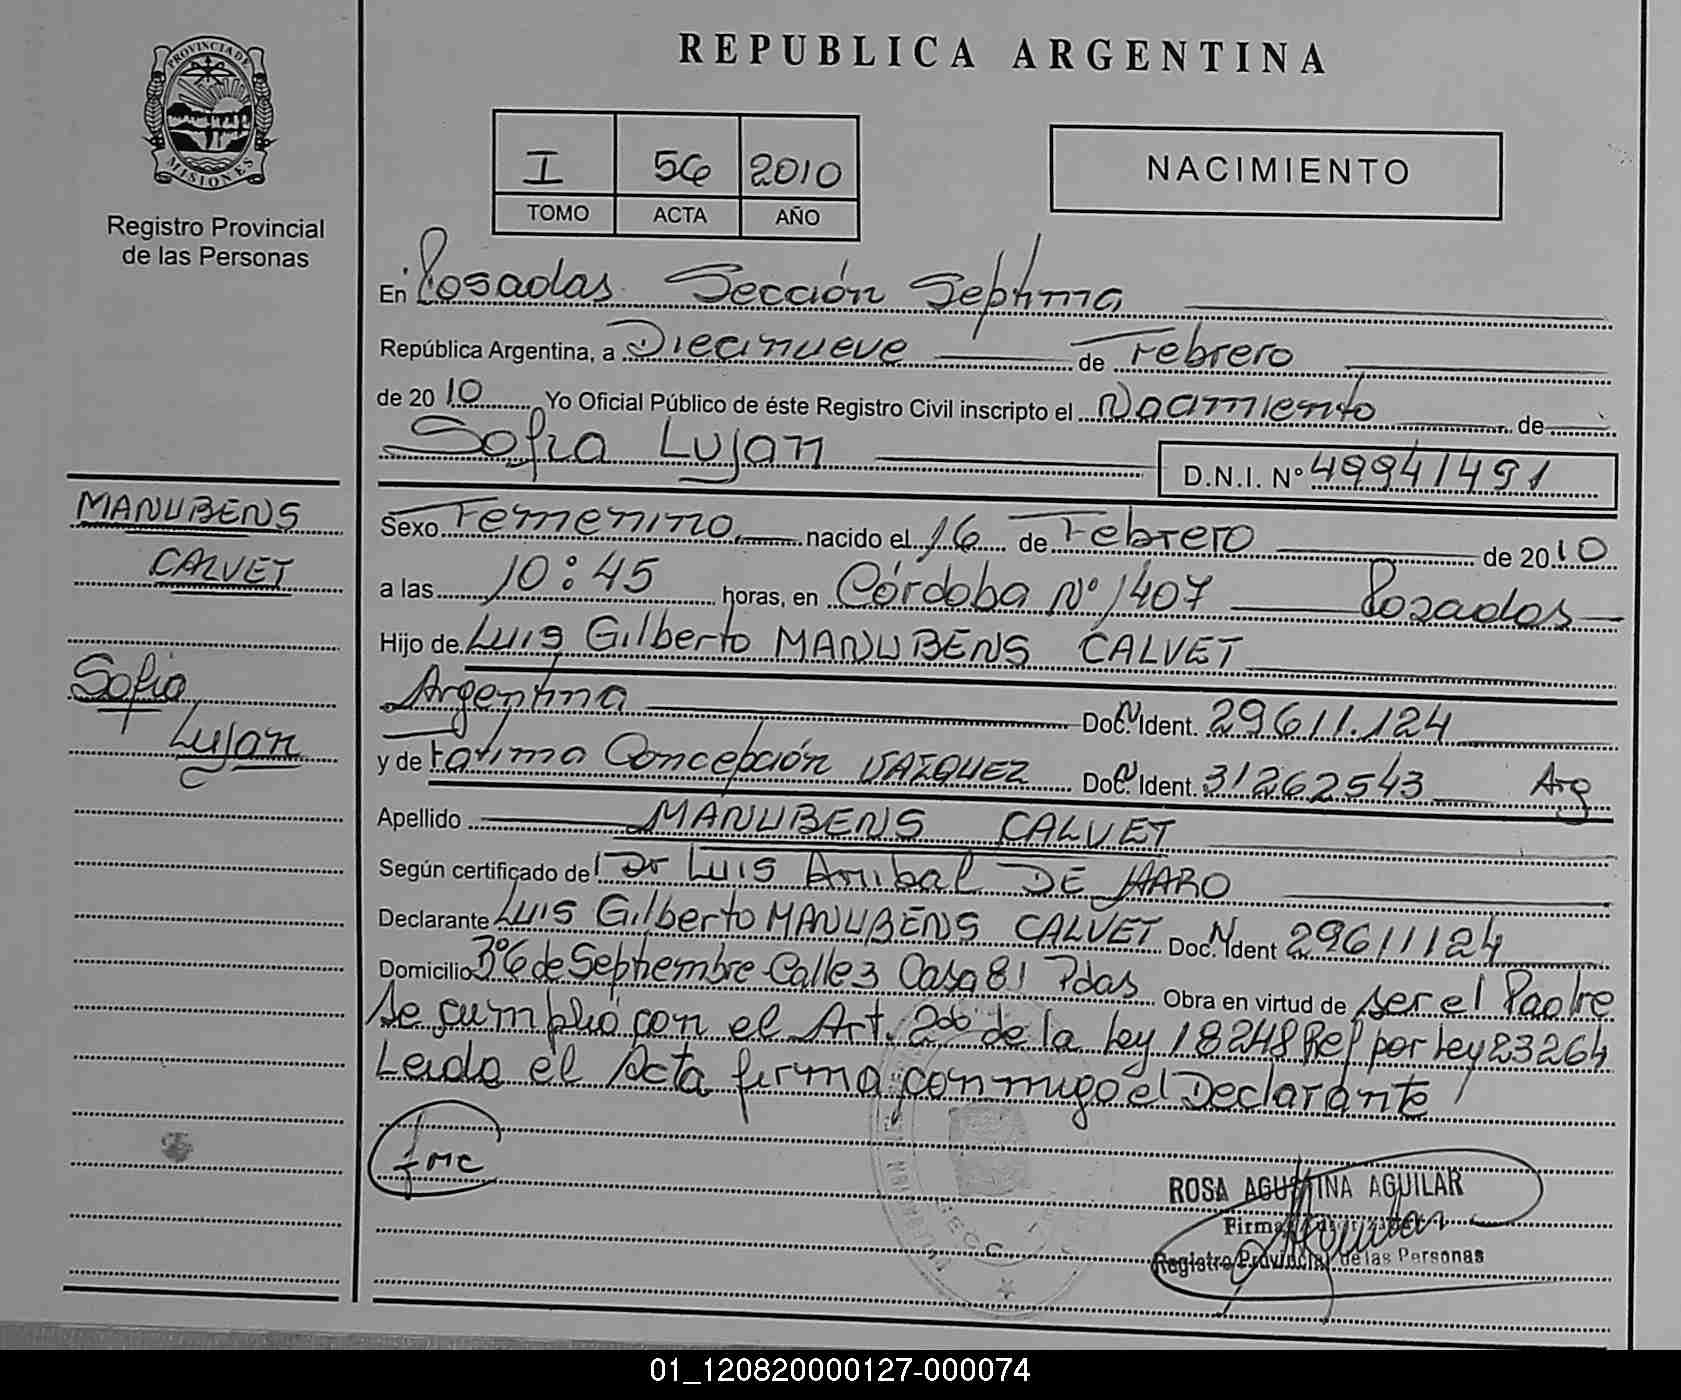 REPUBLICA ARGENTINA
PROVINCIA DE
MISIONES
Registro Provincial
de las Personas
I 56 2010
TOMO ACTA AÑO
NACIMIENTO
En Posadas Sección Septima
República Argentina, a Diecinueve de Febrero
de 2010 Yo Oficial Público de éste Registro Civil inscripto el Nacimiento de
Sofia Lujan D.N.I. Nº 49941491
MANUBENS
CALVET
Sofia
Lujan
Sexo Femenino nacido el 16 de Febrero de 2010
a las 10:45 horas, en Córdoba Nº 1407 Posadas
Hijo de Luis Gilberto MANUBENS CALVET
Argentina Doc. Ident. 29611.124
y de Fatima Concepción VAZQUEZ Doc. Ident. 31262543 Arg
Apellido MANUBENS CALVET
Según certificado de Dr Luis Anibal DE HARO
Declarante Luis Gilberto MANUBENS CALVET Doc. Ident 29611124
Domicilio de Septiembre Calle 3 Casa 81 Pdas Obra en virtud de ser el Padre
Se cumplió con el Art. 2do de la Ley 18248 Ref por Ley 23264
Leida el Acta firma conmigo el Declarante
fmc
ROSA AGUSTINA AGUILAR
Firma
Registro Provincial de las Personas
01_120820000127-000074